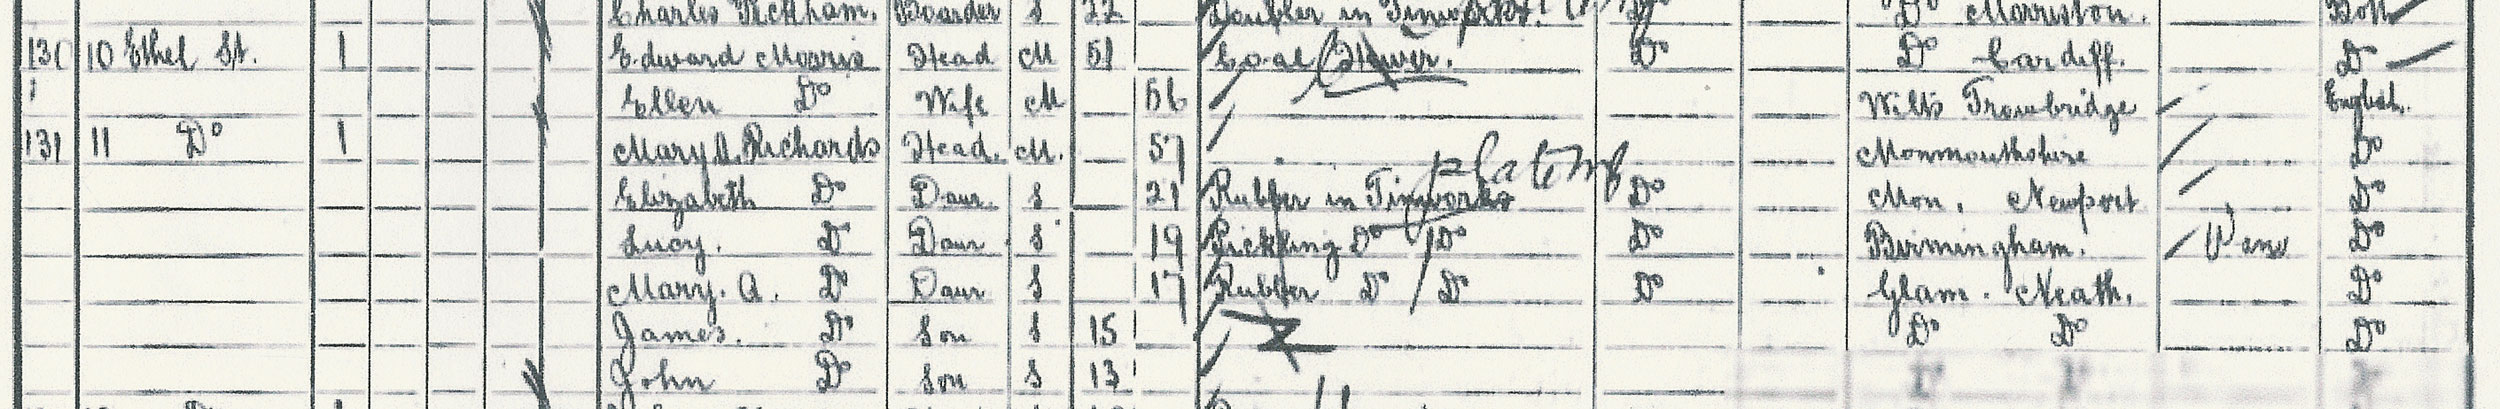 Charles Boarder S 22 Doubler in Tinworks Do Morriston. Both
130 10 Ethel St. 1 Edward Morris Head M 51 Coal Hewer. Do Do Cardiff. Do
Ellen Do Wife M 56 Wilts Trowbridge English
131 11 Do 1 Mary A. Richards Head. M. 57 Monmouthshire Do
Elizabeth Do Daur. S 21 Rubber in Tinworks plate mf Do Mon. Newport Do
Lucy. Do Daur S 19 Pickling Do Do Do Birmingham. Do
Mary. A. Do Daur S 17 Rubber Do Do Do Glam. Neath. Do
James. Do Son S 15 Do Do Do
John Do Son S 13